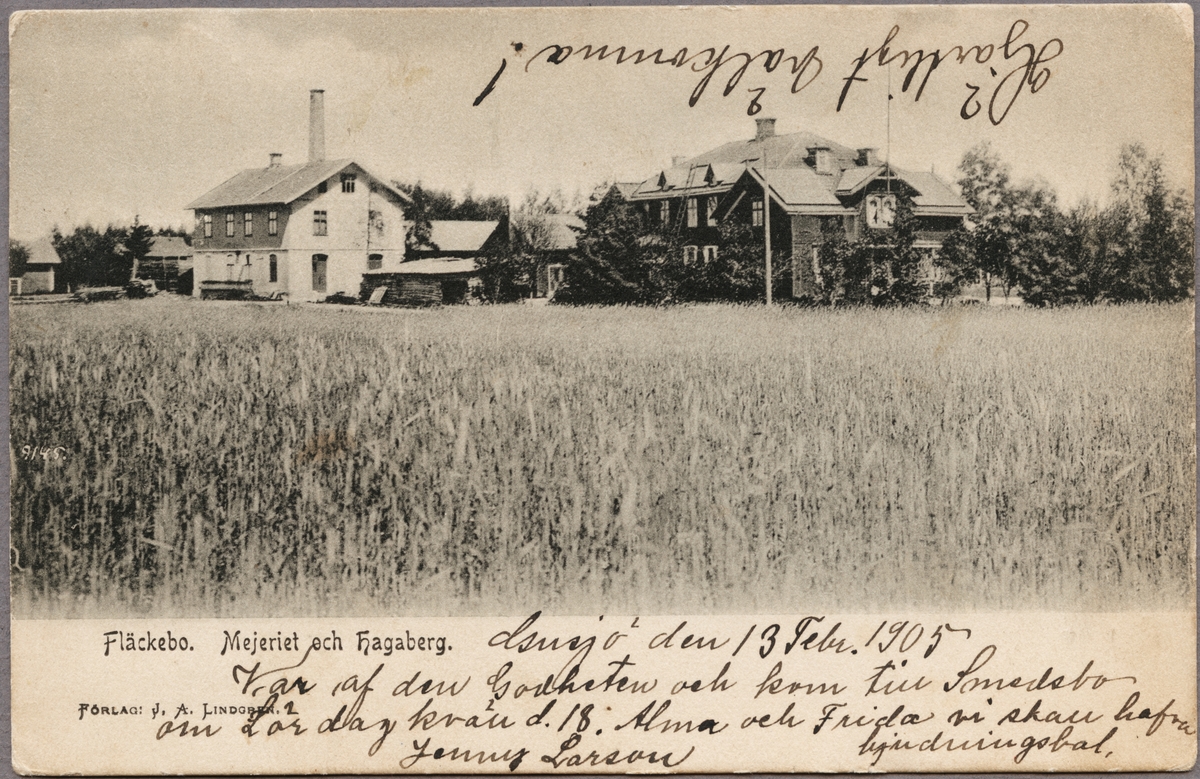 Hjärtligt välkomna!
9145.
Fläckebo. Mejeriet och Hagaberg.
den 13 Febr. 1905
Var af den Godheten och kom till Smedsbo
FÖRLAG: J. A. LINDGREN.
om Lördag kväll d. 18. Alma och Frida vi skall hafva
bjudningsbal.
Jenny Larson